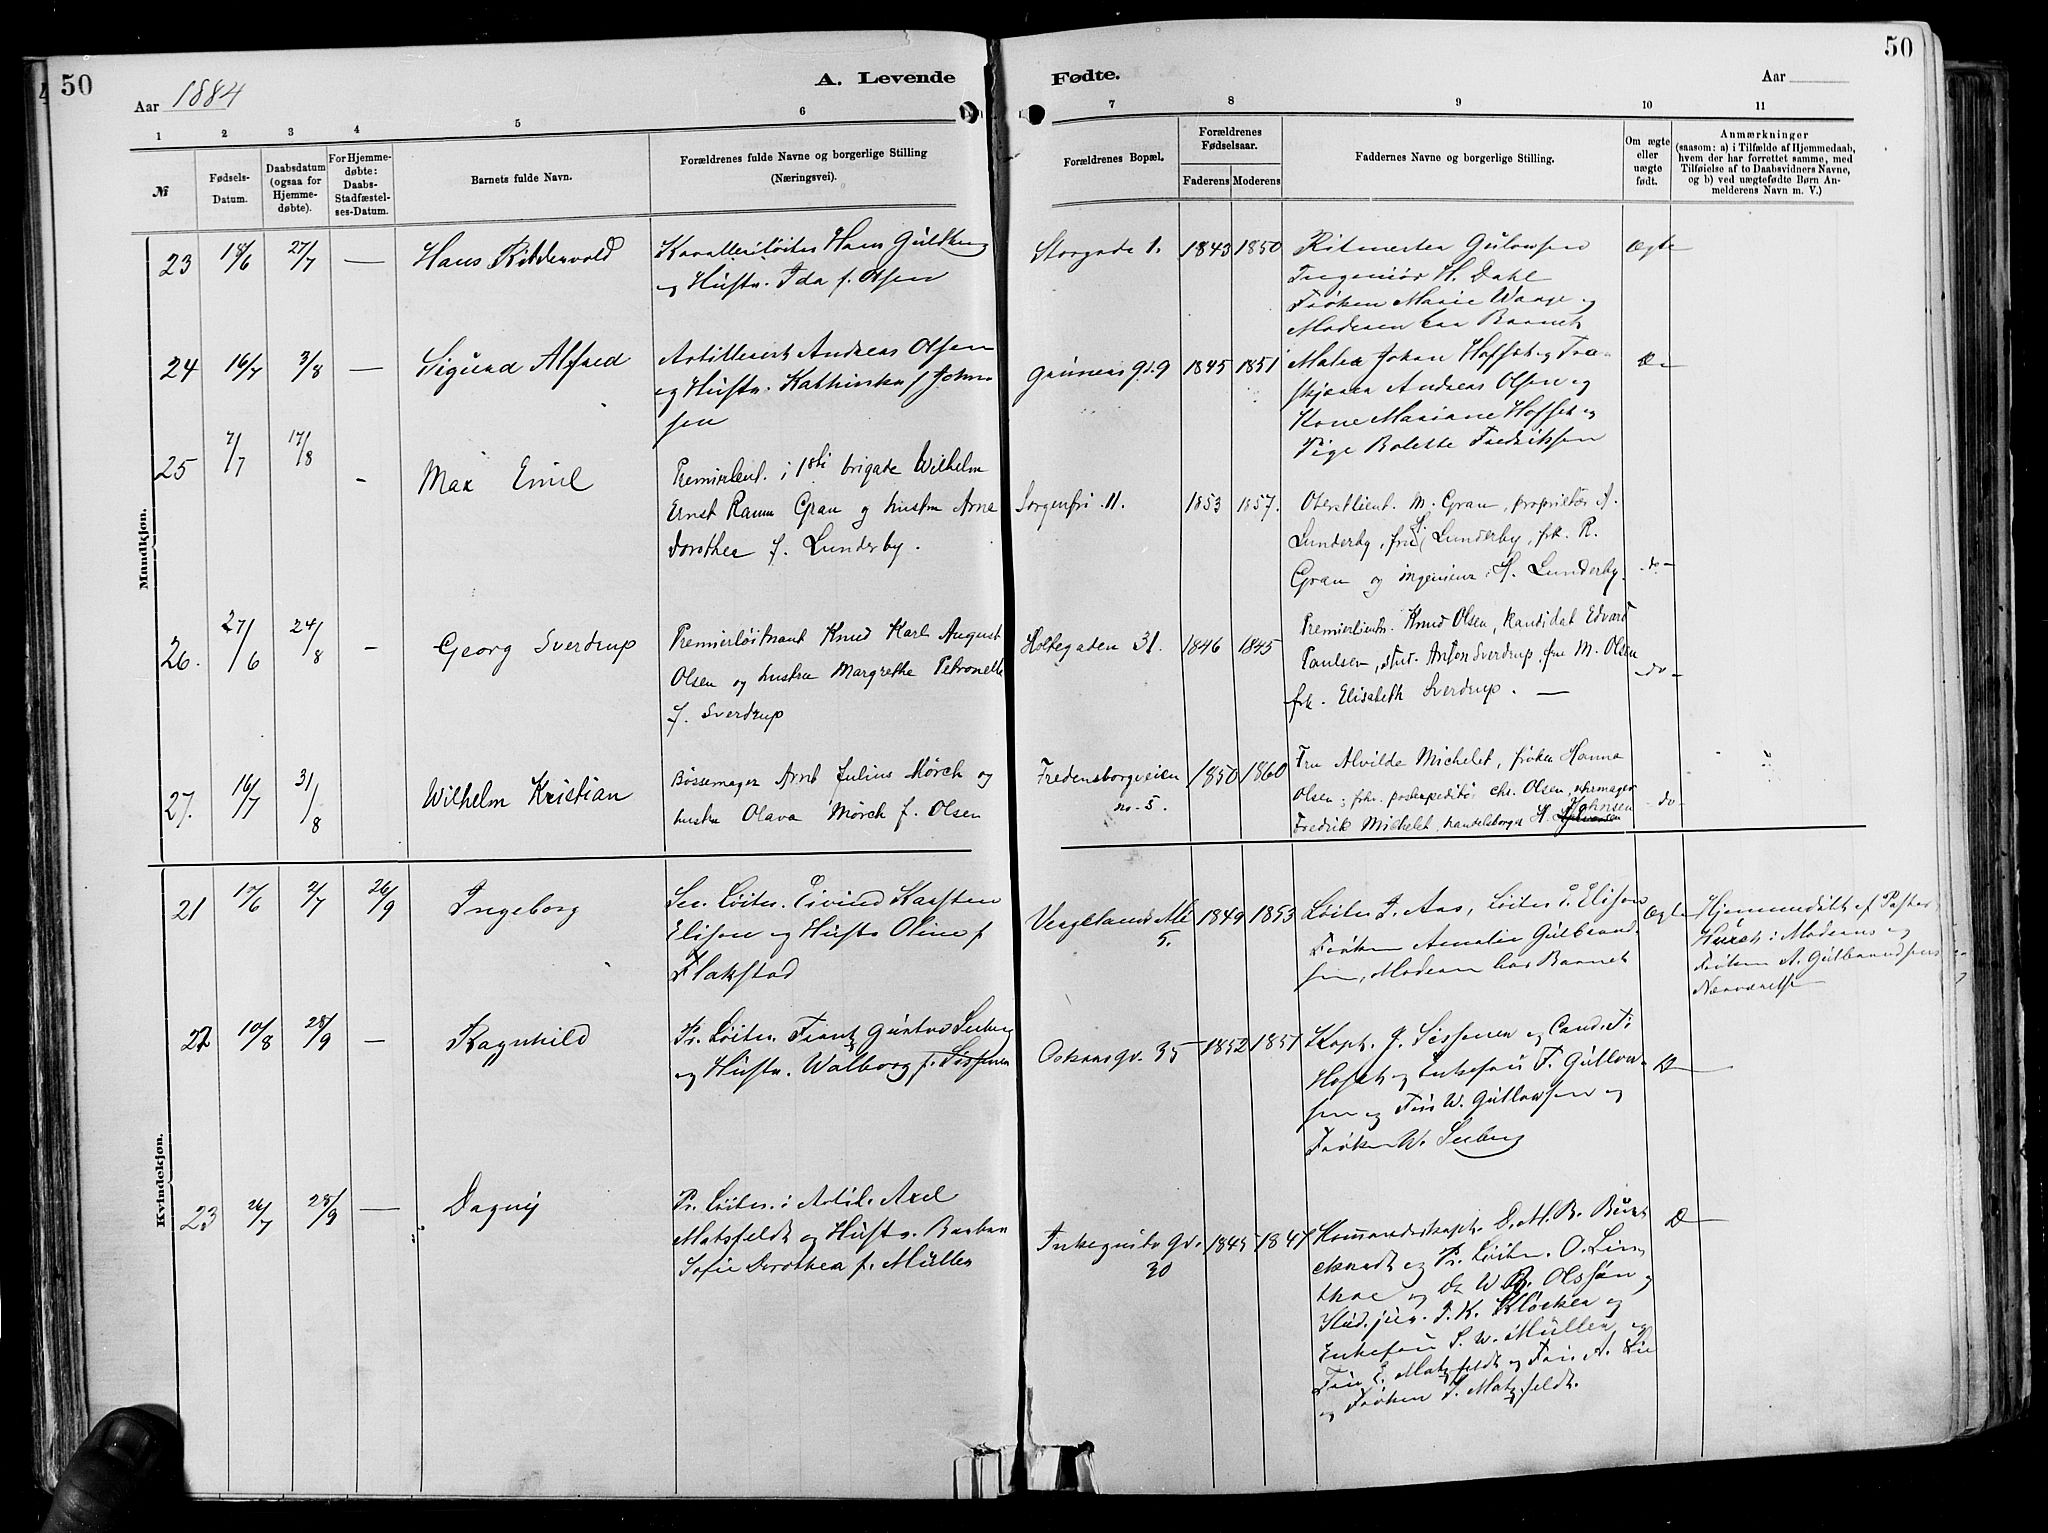 50
50
Aar 1884
A. Levende
Fødte.
Aar
1 2 3 4 5 6 7 8 9 10 11
№
Fødsels-
Datum.
Daabsdatum
(ogsaa for
Hjemme-
døbte).
For Hjemme-
døbte:
Daabs-
Stadfæstel-
ses-Datum.
Barnets fulde Navn.
Forældrenes fulde Navne og borgerlige Stilling
(Næringsvei).
Forældrenes Bopæl.
Forældrenes
Fødselsaar.
Faderens
Moderens
Faddernes Navne og borgerlige Stilling.
Om ægte
eller
uægte
født.
Anmærkninger
(saasom: a) i Tilfælde af Hjemmedaab,
hvem der har forrettet samme, med
Tilføielse af to Daabsvidners Navne,
og b) ved uægtefødte Børn An-
melderens Navn m. V.)
Mandkjøn.
23 18/6 27/7 — Hans Riddervold
Kavalleriløitn. Hans Guldberg
og Hustr. Ida f. Olsen
Storgade 1. 1843 1850
Ritmester Gulowsen
Ingeniør H. Dahl
Frøken Marie Waage og
Moderen bar Barnet
Ægte
24 16/7 3/8 — Sigurd Alfred
Artillerist Andreas Olsen
og Hustr. Kathinka f Johan
sen
Grüners gd. 9 1845 1851
Maler Johan Hoffset og Træ-
skjærer Andreas Olsen og
Kone Mariane Hoffset og
Pige Bolette Fredriksen
D—
25 7/7 17/8 - Max Emil
Premierlieut. i 1ste brigade Wilhelm
Ernst Ramm Gran og hustru Arna
Dorothea f. Lunderby.
Sorgenfri 11. 1853 1857.
Oberstlieut. M. Gran, proprietær A.
Lunderby, fru S. Lunderby, frk. R.
Gran og ingeniør H. Lunderby.
-do-
26. 27/6 24/8 - Georg Sverdrup
Premierløitnant Knud Karl August
Olsen og hustru Margrethe Petronelle
f. Sverdrup
Holtegaden 31. 1846 1845
Premierlieutn. Knud Olsen, kandidat Edvard
Paulsen, stud. Anton Sverdrup, fru M. Olsen
frk. Elisabeth Sverdrup. —
-do-
27. 16/7 31/8 Wilhelm Kristian
Bøssemager Arnt Julius Mörch og
hustru Olava Mörch f. Olsen
Fredensborgveien
no. 5. 1850 1860
Fru Alvilde Michelet, frøken Hanna
Olsen, fhv. postexpeditør Chr. Olsen, uhrmager
Fredrik Michelet, handelsborger H. Johnsen
-do-
Kvindekjøn.
21 17/6 2/7 26/9 Ingeborg
Sec. Løitn. Eivind Karsten
Elison og Hustr. Oline f
Flakstad
Vergelands Alle
5. 1849 1853
Løitn J. Aas, Løitn E. Elison
Frøken Amalie Gulbrand
sen, Moderen bar Barnet
Ægte
Hjemmedøbt af Pastor
i Moderens og
Frøken A. Gulbrandsens
Nærværelse
22 10/8 28/9 — Ragnhild
Pr. Løitn. Frantz Gustav Seeberg
og Hustr. Walborg f. Sissener
Oskarsgd. 35 1852 1851
Kapt. J. Sissener og Cand. T:
Hofset og Enkefru F. Gullow-
sen og Frk W. Gullowsen og
Frøken W. Seeberg
D—
23 26/7 28/9 — Dagny
Pr. Løitn. i Artil. Axel
Matsfeldt og Hustr. Barbra
Sofie Dorothea f. Müller
Inkognito gd.
30 1845 1847
Kommandørkapt. D. M. B. Burc
chardt og Pr. Løitn. O. Lin
thoe og do W. B. Olssøn og
Stud. jur. J. K. Klöcker og
Enkefru S. W. Müller og
Fru E. Matzfeldt og Frk A. Lie
og Frøken J. Matzfeldt.
D—